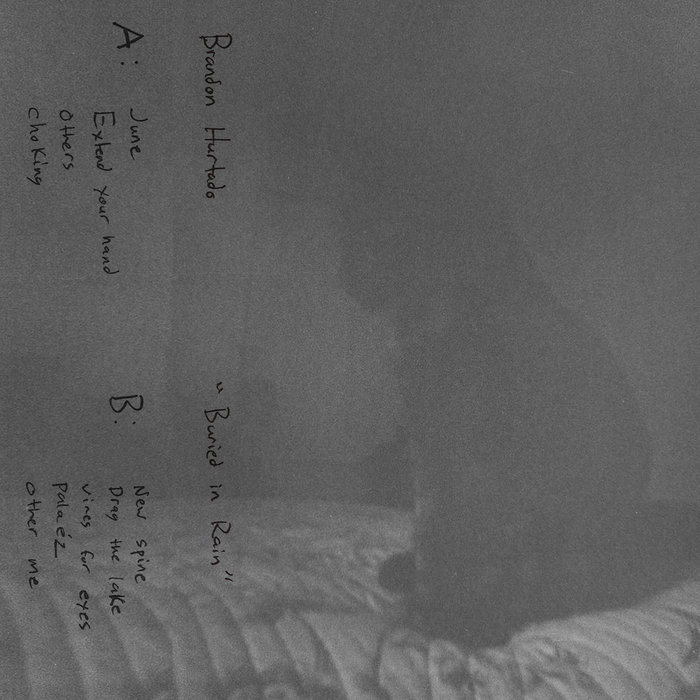 Brandon Hurtado
"Buried in Rain"
A:
June
Extend your hand
others
choking
B:
New spine
Drag the lake
vines for eyes
Palaéz
other me